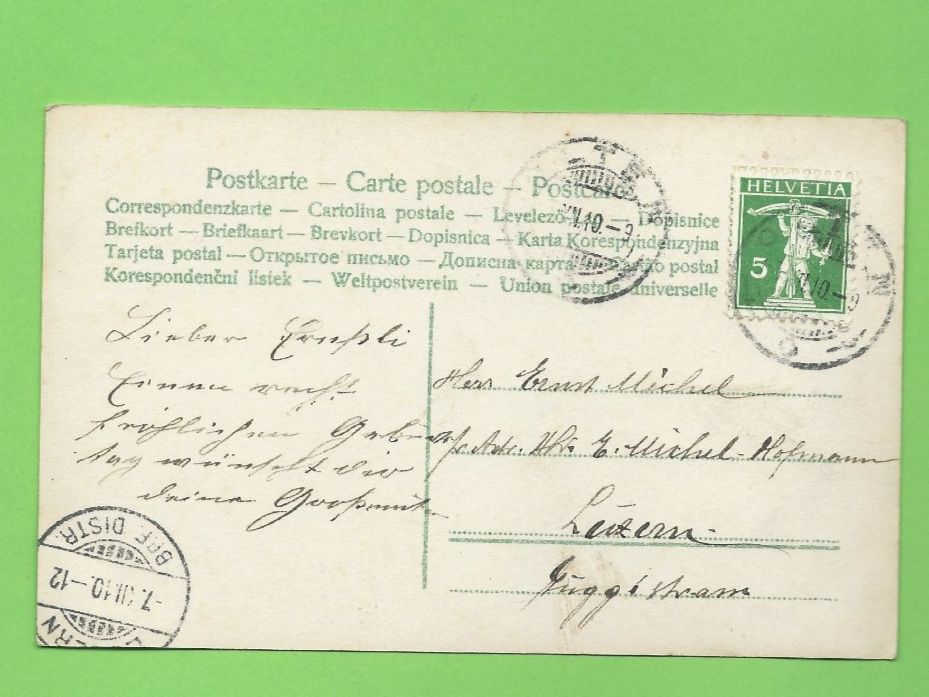 Postkarte — Carte postale — Postcard
Correspondenzkarte — Cartolina postale — Levelező — Dopisnice
Brefkort — Briefkaart — Brevkort — Dopisnica — Karta Korespondenzyjna
Tarjeta postal — Открытое письмо — Дописна карта postal
Korespondenční lístek — Weltpostverein — Union postale universelle
HELVETIA
5
LTEN
VII.10.—9
Lieber Ernstli
Einen recht
fröhlichen Geburts
tag wünscht dir
deine Großmutter
Herr Ernst Michel
Adr. E. Michel-Hofmann
Luzern
BRF. DISTR.
-7.VII.10.—12
ERN